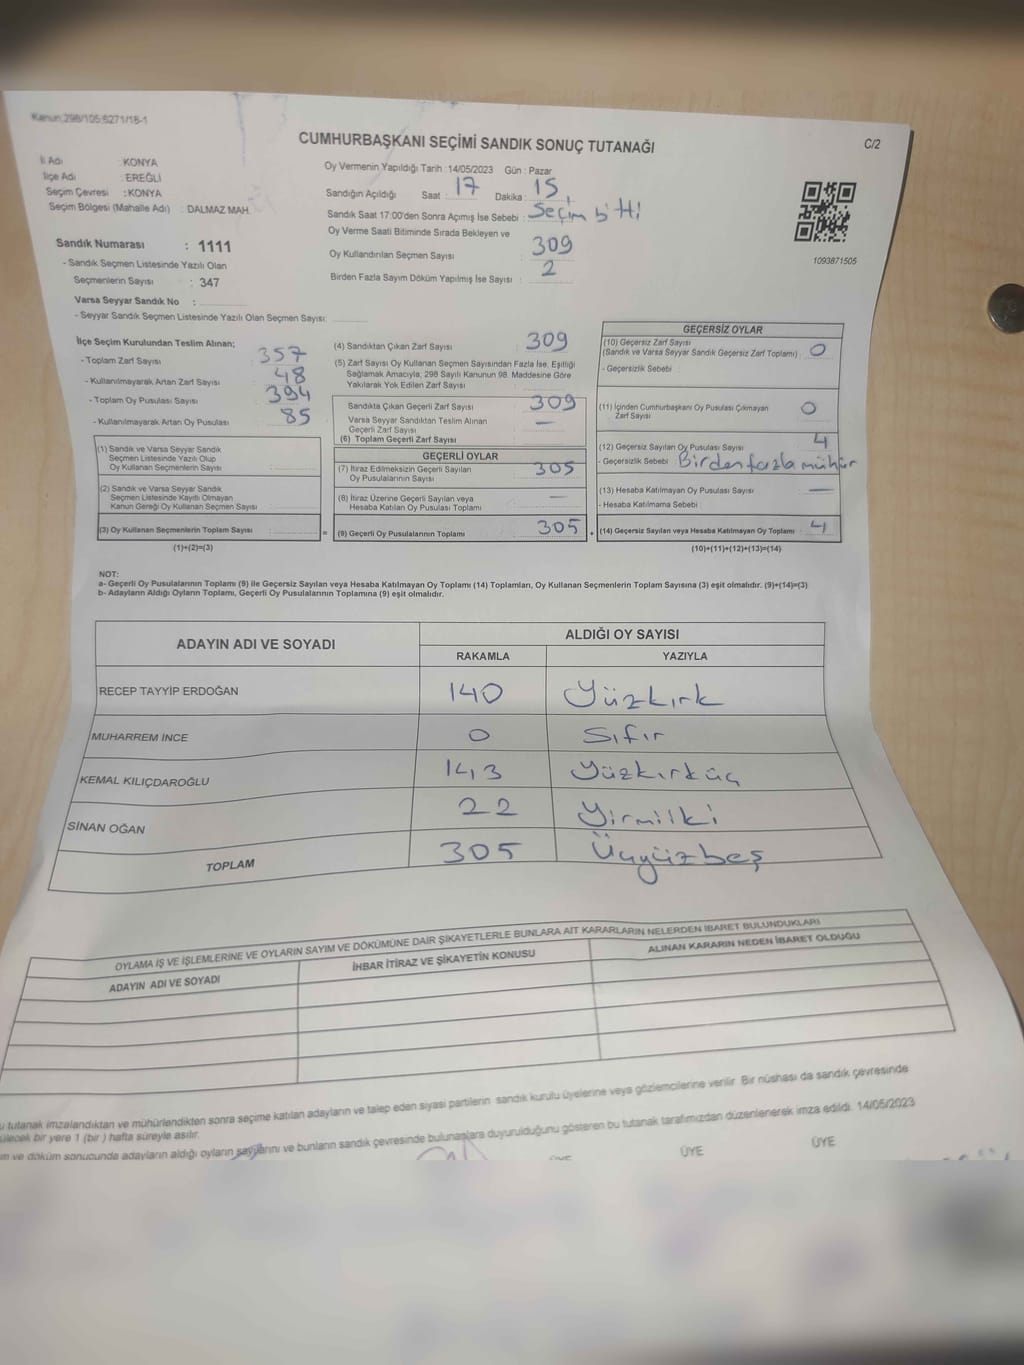 Kanun;298/105;6271/18-1
CUMHURBAŞKANI SEÇİMİ SANDIK SONUÇ TUTANAĞI
C/2
İl Adı : KONYA
İlçe Adı : EREĞLİ
Seçim Çevresi : KONYA
Seçim Bölgesi (Mahalle Adı) : DALMAZ MAH.
Oy Vermenin Yapıldığı Tarih : 14/05/2023 Gün : Pazar
Sandığın Açıldığı Saat : 17 Dakika : 15
Sandık Saat 17:00'den Sonra Açımış İse Sebebi : Seçim bitti
Oy Verme Saati Bitiminde Sırada Bekleyen ve
Oy Kullandırılan Seçmen Sayısı : 309
Birden Fazla Sayım Döküm Yapılmış İse Sayısı : 2
1093871505
Sandık Numarası : 1111
- Sandık Seçmen Listesinde Yazılı Olan
Seçmenlerin Sayısı : 347
Varsa Seyyar Sandık No :
- Seyyar Sandık Seçmen Listesinde Yazılı Olan Seçmen Sayısı:
İlçe Seçim Kurulundan Teslim Alınan;
- Toplam Zarf Sayısı : 357
- Kullanılmayarak Artan Zarf Sayısı : 48
- Toplam Oy Pusulası Sayısı : 394
- Kullanılmayarak Artan Oy Pusulası : 85
(1) Sandık ve Varsa Seyyar Sandık
Seçmen Listesinde Yazılı Olup
Oy Kullanan Seçmenlerin Sayısı :
(2) Sandık ve Varsa Seyyar Sandık
Seçmen Listesinde Kayıtlı Olmayan
Kanun Gereği Oy Kullanan Seçmen Sayısı :
(3) Oy Kullanan Seçmenlerin Toplam Sayısı :
(1)+(2)=(3)
(4) Sandıktan Çıkan Zarf Sayısı : 309
(5) Zarf Sayısı Oy Kullanan Seçmen Sayısından Fazla İse, Eşitliği
Sağlamak Amacıyla, 298 Sayılı Kanunun 98. Maddesine Göre
Yakılarak Yok Edilen Zarf Sayısı :
Sandıkta Çıkan Geçerli Zarf Sayısı : 309
Varsa Seyyar Sandıktan Teslim Alınan
Geçerli Zarf Sayısı : —
(6) Toplam Geçerli Zarf Sayısı
GEÇERLİ OYLAR
(7) İtiraz Edilmeksizin Geçerli Sayılan
Oy Pusulalarının Sayısı : 305
(8) İtiraz Üzerine Geçerli Sayılan veya
Hesaba Katılan Oy Pusulası Toplamı : —
(9) Geçerli Oy Pusulalarının Toplamı : 305
GEÇERSİZ OYLAR
(10) Geçersiz Zarf Sayısı
(Sandık ve Varsa Seyyar Sandık Geçersiz Zarf Toplamı) : 0
- Geçersizlik Sebebi :
(11) İçinden Cumhurbaşkanı Oy Pusulası Çıkmayan
Zarf Sayısı : 0
(12) Geçersiz Sayılan Oy Pusulası Sayısı : 4
- Geçersizlik Sebebi : Birden fazla mühür
(13) Hesaba Katılmayan Oy Pusulası Sayısı : —
- Hesaba Katılmama Sebebi :
(14) Geçersiz Sayılan veya Hesaba Katılmayan Oy Toplamı : 4
(10)+(11)+(12)+(13)=(14)
NOT:
a- Geçerli Oy Pusulalarının Toplamı (9) ile Geçersiz Sayılan veya Hesaba Katılmayan Oy Toplamı (14) Toplamları, Oy Kullanan Seçmenlerin Toplam Sayısına (3) eşit olmalıdır. (9)+(14)=(3)
b- Adayların Aldığı Oyların Toplamı, Geçerli Oy Pusulalarının Toplamına (9) eşit olmalıdır.
ADAYIN ADI VE SOYADI
ALDIĞI OY SAYISI
RAKAMLA YAZIYLA
RECEP TAYYİP ERDOĞAN 140 Yüzkırk
MUHARREM İNCE 0 Sıfır
KEMAL KILIÇDAROĞLU 143 Yüzkırküç
SİNAN OĞAN 22 Yirmiiki
TOPLAM 305 Üçyüzbeş
OYLAMA İŞ VE İŞLEMLERİNE VE OYLARIN SAYIM VE DÖKÜMÜNE DAİR ŞİKAYETLERLE BUNLARA AİT KARARLARIN NELERDEN İBARET BULUNDUKLARI
ADAYIN ADI VE SOYADI İHBAR İTİRAZ VE ŞİKAYETİN KONUSU ALINAN KARARIN NEDEN İBARET OLDUĞU
tutanak imzalandıktan ve mühürlendikten sonra seçime katılan adayların ve talep eden siyasi partilerin sandık kurulu üyelerine veya gözlemcilerine verilir. Bir nüshası da sandık çevresinde
bir yere 1 (bir) hafta süreyle asılır.
ve döküm sonucunda adayların aldığı oyların sayılarını ve bunların sandık çevresinde bulunanlara duyurulduğunu gösteren bu tutanak tarafımızdan düzenlenerek imza edildi. 14/05/2023
ÜYE ÜYE